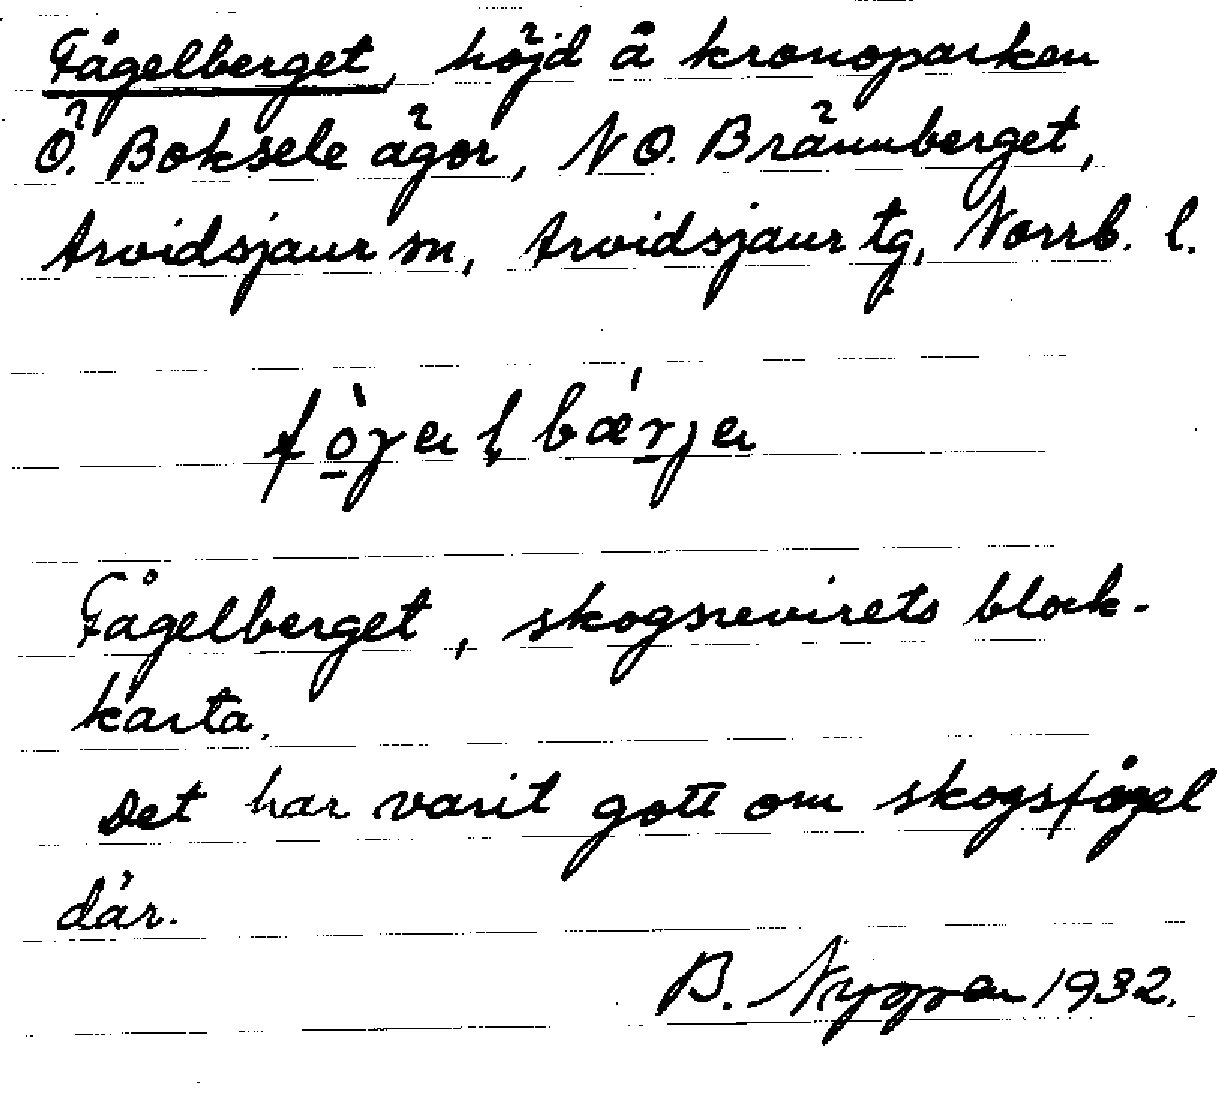 Fågelberget, höjd å kronoparken
Ö. Boksele ägor, NO. Brännberget,
Arvidsjaur sn, Arvidsjaur tg, Norrb. l.
fò̱γəlbæ´ṟjə
Fågelberget, skogsrevirets block-
karta.
Det har varit gott om skogsfågel
där.
B. Nyman 1932.